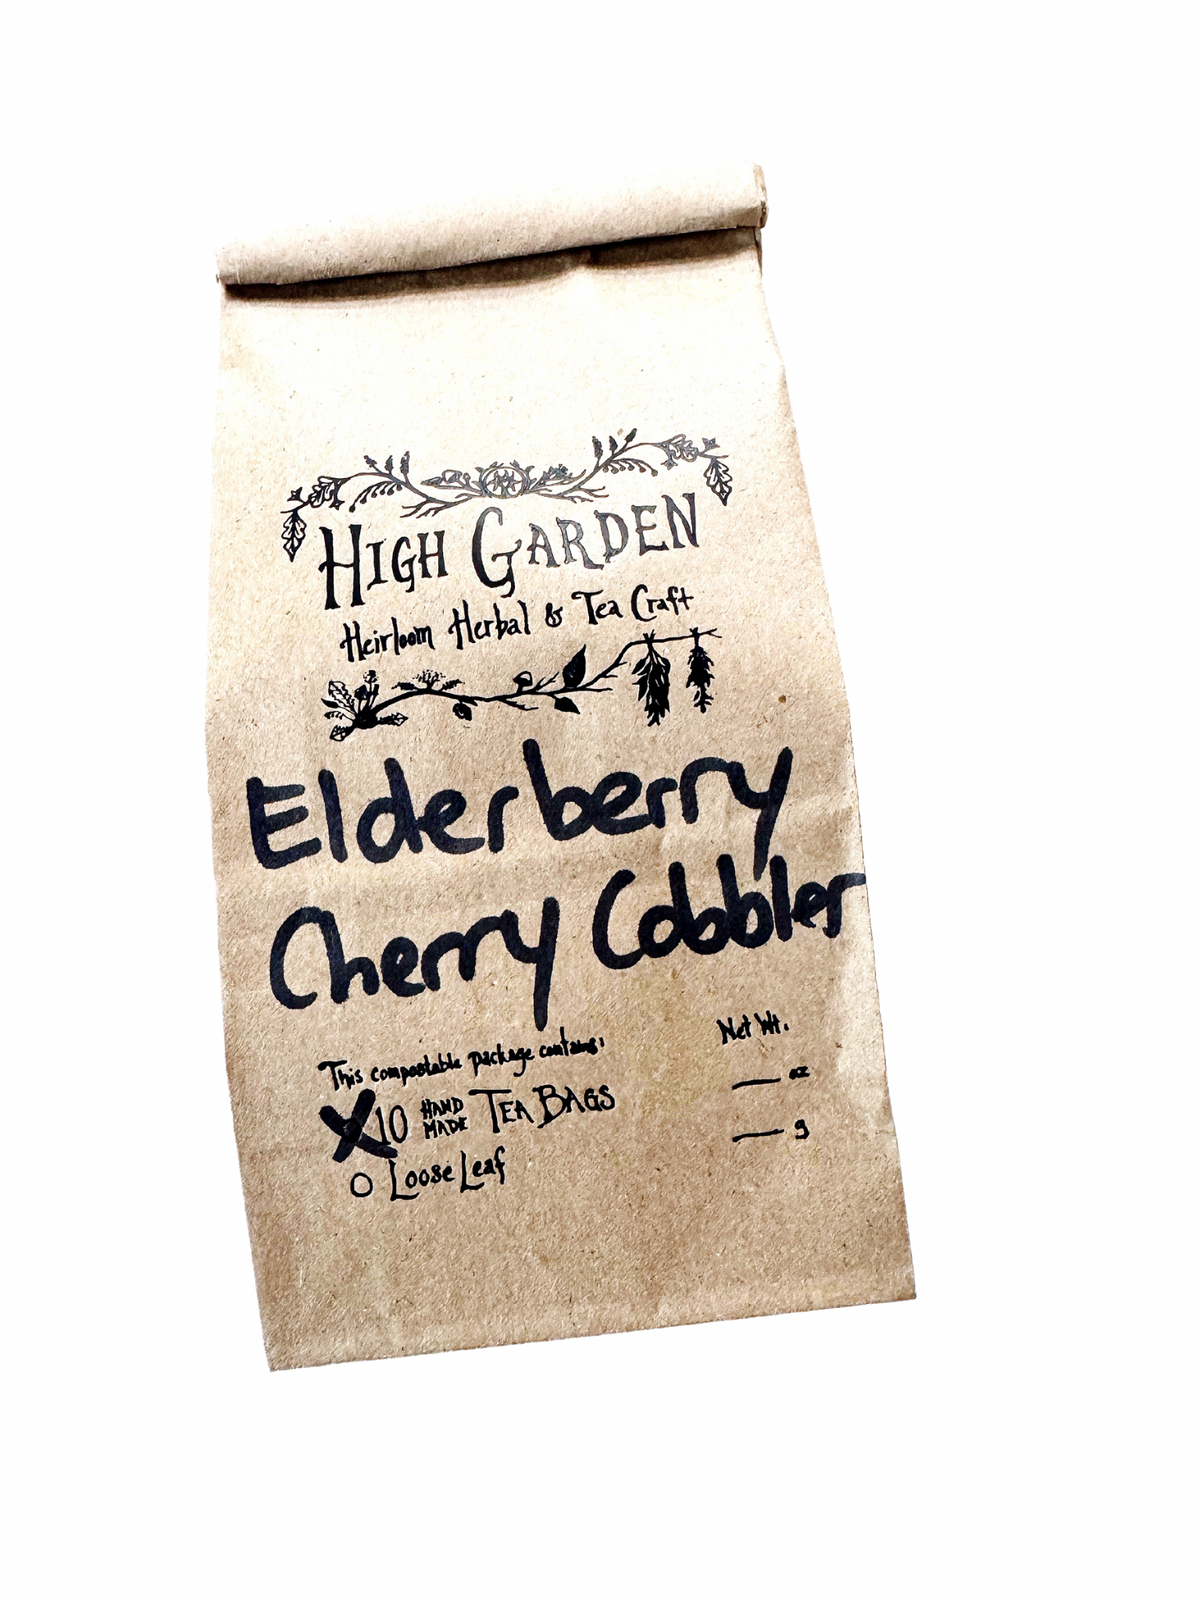 HIGH GARDEN
Heirloom Herbal & Tea Craft
Elderberry
Cherry Cobbler
This compostable package contains:
X 10 HAND MADE TEA BAGS
O Loose Leaf
Net Wt.
___ oz
___ g